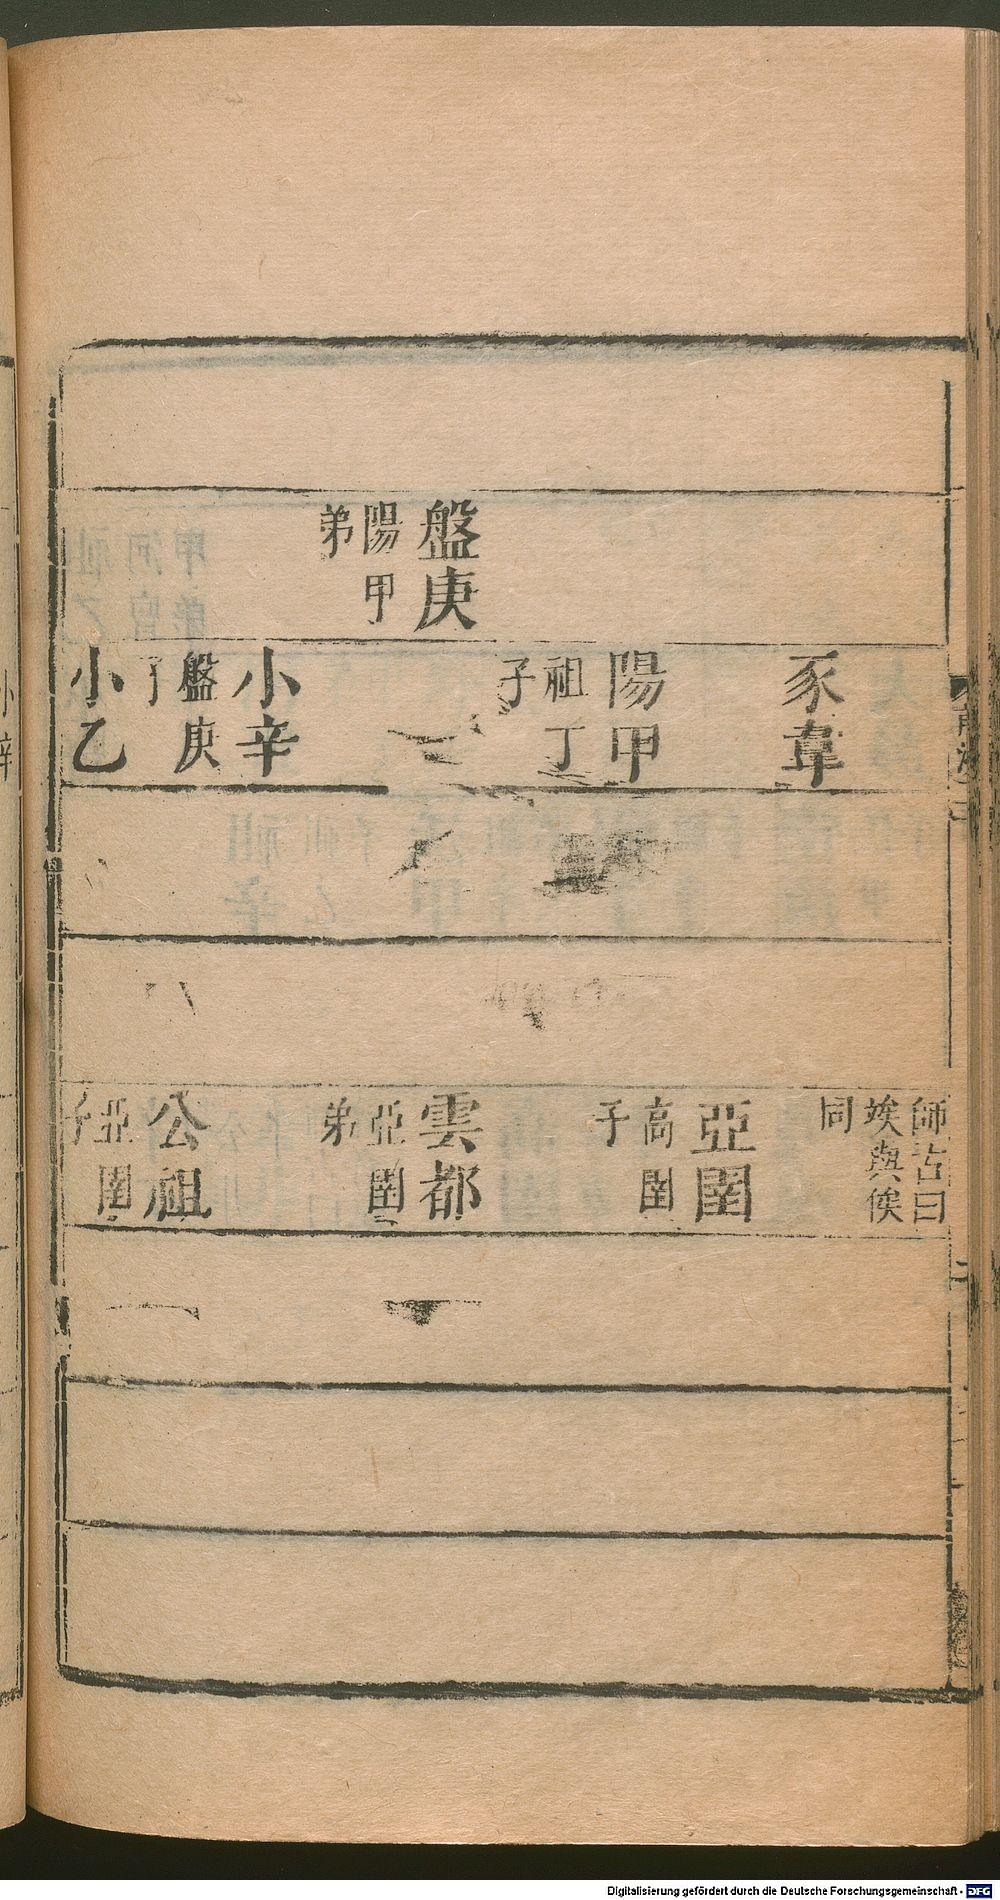 盤庚
陽甲
弟
豕韋
陽甲
祖丁
子
小辛
盤庚
小乙
師古曰
竢與俟
同
亞圉
高圉
子
雲都
亞圉
弟
公祖
亞圉
子
Digitalisierung gefördert durch die Deutsche Forschungsgemeinschaft - DFG